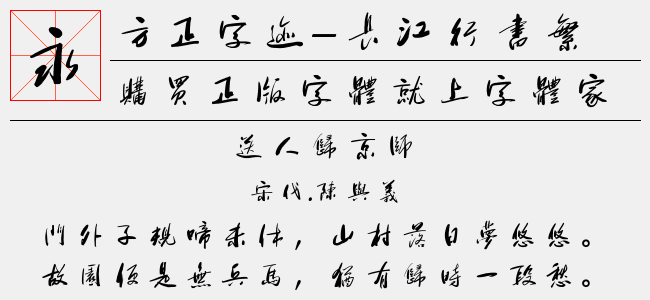 永
方正字迹—長江行書繁
購買正版字體就上字體家
送人歸京師
宋代.陳與義
門外子規啼未休，山村落日夢悠悠。
故園便是無兵馬，猶有歸時一段愁。